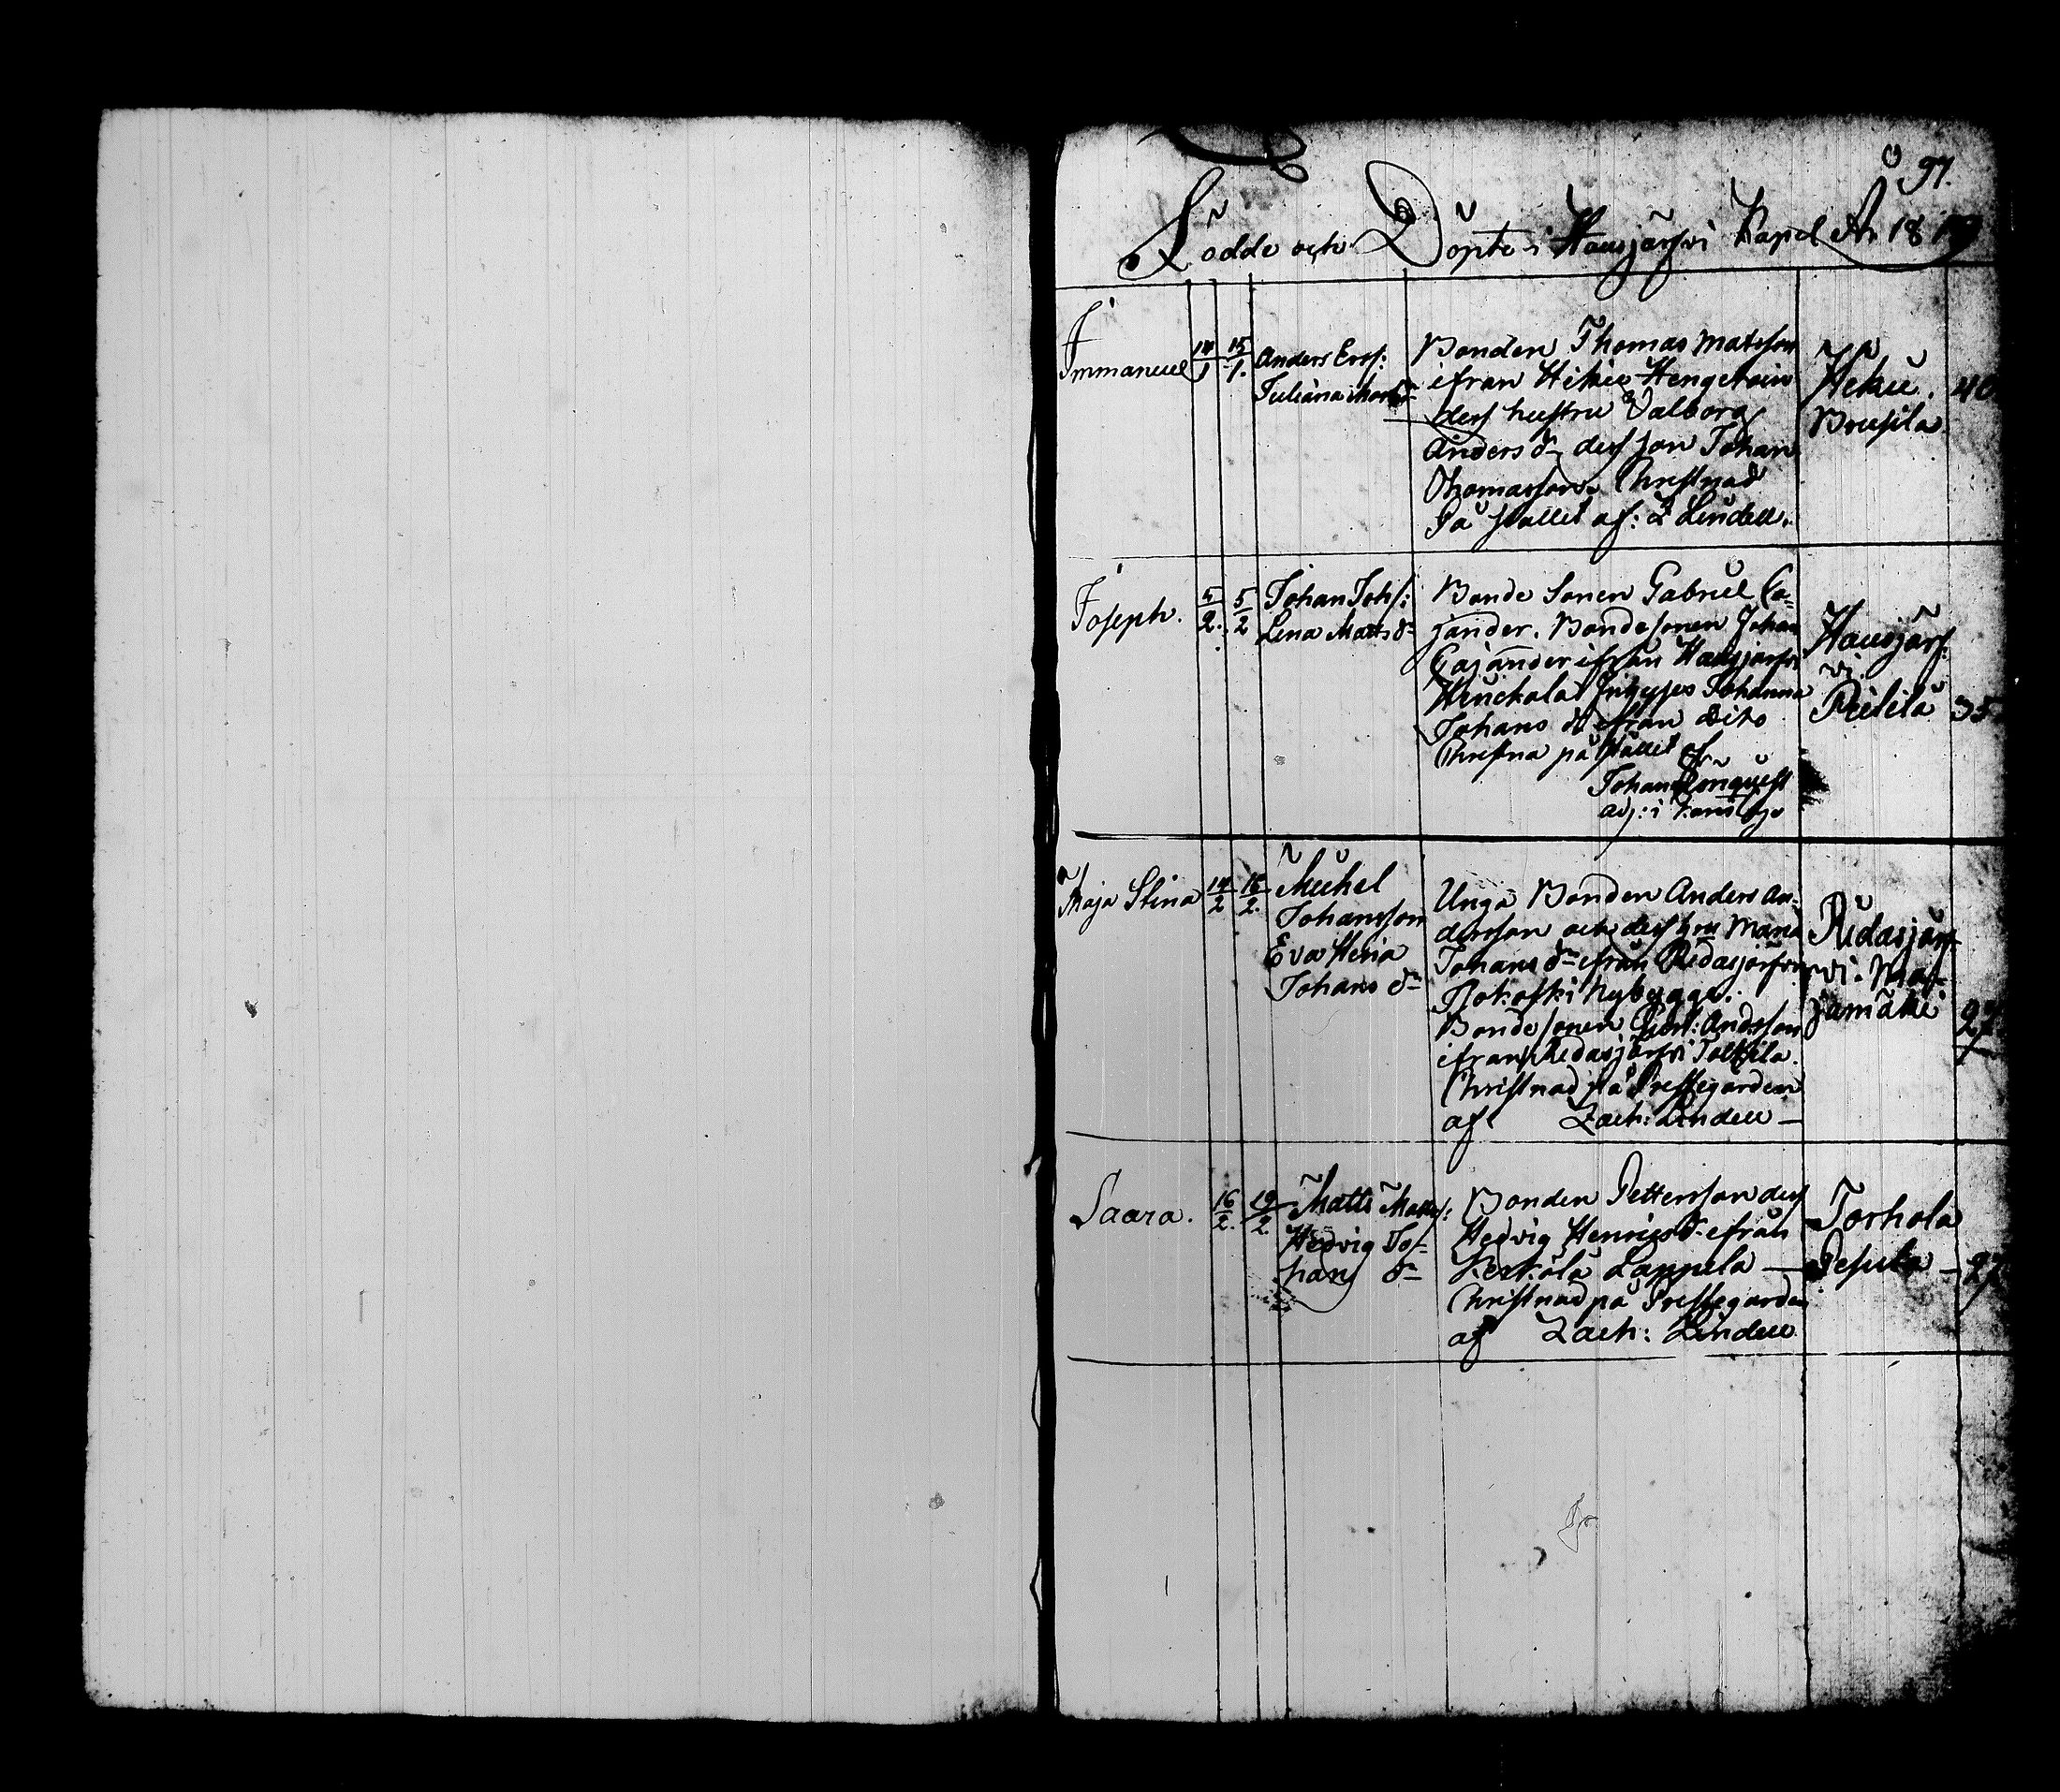 97.
Födde och Döpte i Hausjärfvi Kapel År 18
Immanuel 14/1 15/1.
Anders Ersf:
Juliana
Bonden Thomas Matsson
ifrån Hikie Hengetoin
dess hustru Valborg
Anders dr, dess son Johan
Thomasson. Christnad
På stället af: Z Lindell.
Hikiä.
Brusila
40
Joseph. 4/2. 5/2
Johan Johs:
Lena Matts dr
Bonde Sonen Gabriel Ca=
jander. Bondesonen Johan
Cajander ifrån Hausjärfvi
Heuckala Inhyses Johanna
Johans dr ifrån dito
Christna på stället af
Johan Lönqvist
adj: i
Hausjärf:
vi.
Piililä
35
Maja Stina 14/2 16/2.
Michel
Johansson
Eva Heria
Johans dr
Unga Bonden Anders An=
dersson och dess hru Maria
Johans dr ifrån Ridasjärfvi
nybygge.
Bonde sonen Gust: Andsson
ifrån Ridasjärfvi
Christnad på Prestegården
af Zach: Lindell —
Ridasjärf
vi. Mar
jamäki
27
Saara. 16/2. 19/2.
Matts Matts:
Hedvig Jo=
hans dr
Bonden Pettersson dess
Hedvig Henrics dr ifrån
Kerkölä Lappila —
Christnad på Prestegården
af Zach: Lindell
Torhola
Pesula — 27